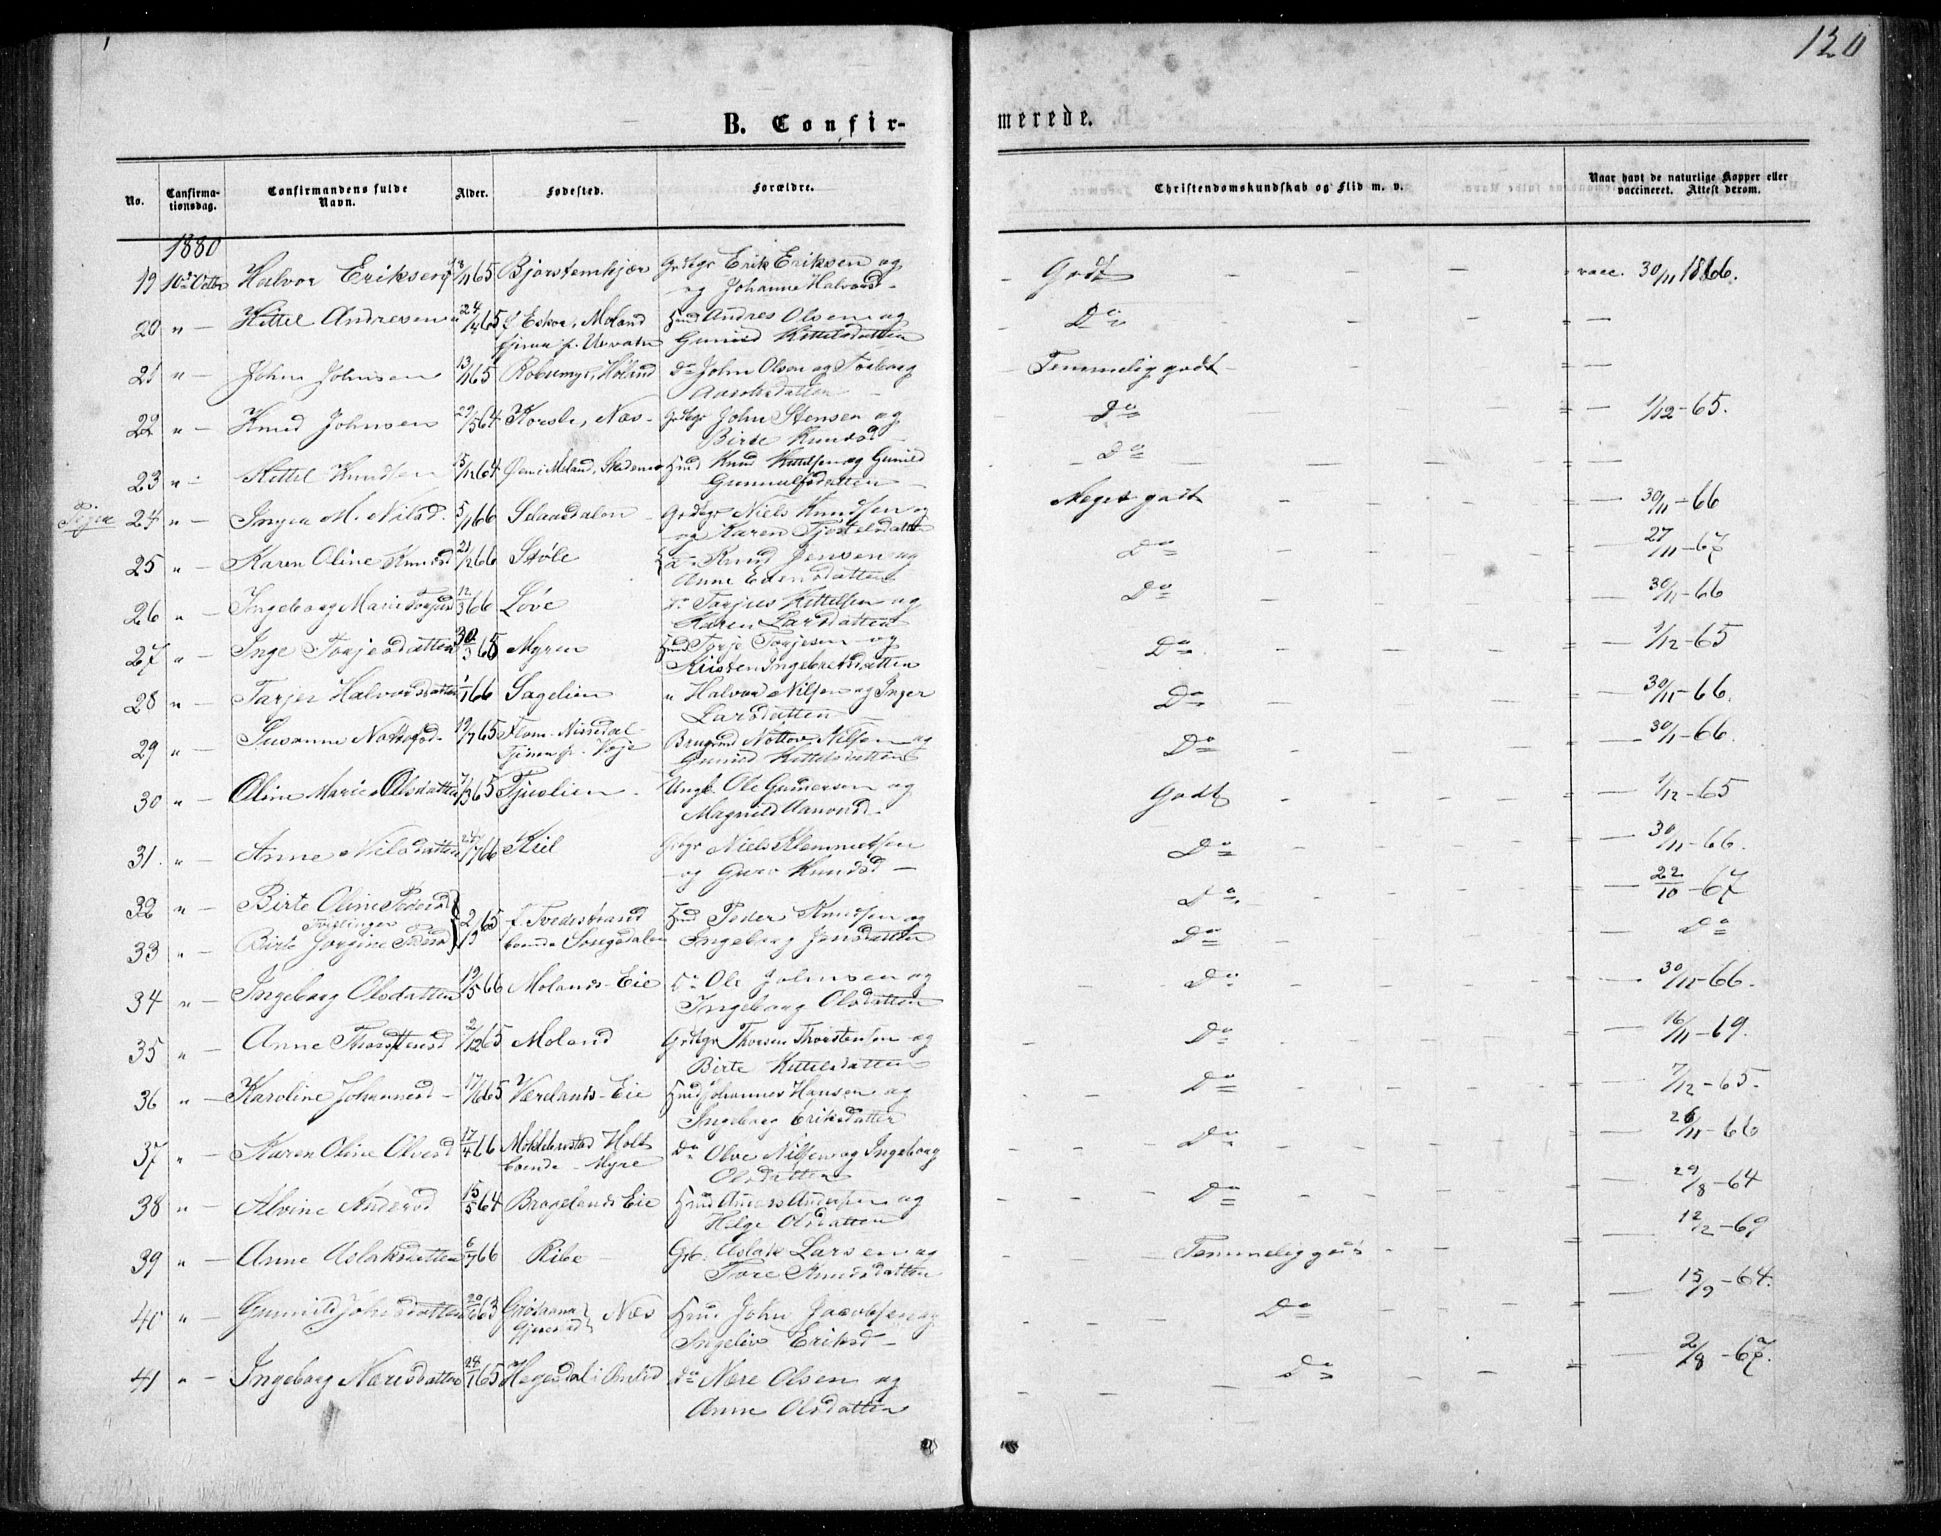 120
B. Confir-
merede.
No.
Confirma-
tionsdag.
Confirmandens fulde
Navn.
Alder.
Fødested.
Forældre.
Christendomskundskab og Flid m. v.
Naar havt de naturlige Kopper eller
vaccineret. Attest derom.
1880
19 10de Octbr Halvor Eriksen 65 Bjorstemkjær Grdbgr Erik Eriksen og Godt vacc. 30/11 1866.
og Johanne Halvorsd.
20 " Kittel Andresen 65 f. Eskor, Moland Hmd Andres Olsen og Do
Gunild Kittelsdatter
21 " John Johnsen 13/11 65 Robsmyr, Moland Do John Olsen og Torborg Temmelig godt
22 " Knud Johnsen 29/5 64 Næs Grdbgr John Stensen og Do 1/12-65.
Birte Knudsd
23 " Kittel Knudsen 64 Moland Hmd Knud Kittelsen og Gunild Do
Gunnulfsdatter
24 " M. Nilsd. 5/1 66 Grdbgr Niels Knudsen og Meget godt 30/11-66
og Karen Tjøstelsdatt
25 " Karen Oline Knudsd 21/2 66 Støle Do Knud Jensen og Do 27/11-67
Anne
26 " Ingeborg Marie Torjusd 12/3 66 Løve Do Torjus Kittelsen og Do 30/11-66
Karen Larsdatter
27 " Inge Torjesdatter 30/3 65 Myren Hmd Torje Torjesen og Do 1/12-65
Kirsten Ingebretsdatter
28 " Tarjer Halvorsdatter 1/1 66 Sagelien " Halvor Nilsen og Inger Do 30/11-66.
Larsdatter
29 " Susanne Nottosd. 19/7 65 Nissedal Brugmd Nottov Nilsen og Do 30/11-66.
Tjener p. Voje Gunild Kittelsdatter
30 " Oline Marie Olsdatter 7/3 65 Tjuslien Ungk. Ole Gunersen og Godt 1/12-65
Magnild Aanonsd.
31. " Anne Nilsdatter 24/7 66 Kiil Grdbgr Niels Klemmetsen Do 30/11-66.
og Guro Knudsd
32 " Birte Oline Pedersd 2/9 65 f. Tvedestrand Hmd Peder Knudsen og Do 22/10-67
Tvillinger
33 " Birte Jorgine Pedersd boende Songedalen Ingeborg Jensdatter Do Do
34 " Ingeborg Olsdatter 19/5 66 Molands-Eie Do Ole Johnsen og Do 30/11-66.
Ingeborg Olsdatter
35 " Anne Thorstensd 2/12 65 Moland Grdbgr Thorsen Thorstensen og Do 16/11-69.
Birte Kittelsdatter
36 " Karoline Johannesd 17/6 65 Værelands-Eie Hmd Johannes Hansen og Do 7/12-65.
Ingeborg Eriksdatter
37 " Karen Oline Olvesd 17/4 66 Holt Do Olve Nilsen og Ingeborg Do 26/11-66
boende Myre Olsdatter
38 " Alvine Andersd 15/5 64 Brogelands Eie Hmd Anders Andersen og Do 29/8-64
Helge Olsdatter
39 " Anne Aslaksdatter 6/7 66 Ribe Grb. Aslak Larsen og Temmelig godt 12/2-69
Tore Knudsdatter
40 " Gunnild Johnsdatter 20/6 63 Næs Hmd John Jacobsen og Do 15/9-64.
Ingeliv Eriksd
41 " Ingeborg Næresdatter 24/1 65 Hegesdal i Omlid Do Nære Olsen og Do 2/8-67.
Anne Olsdatter